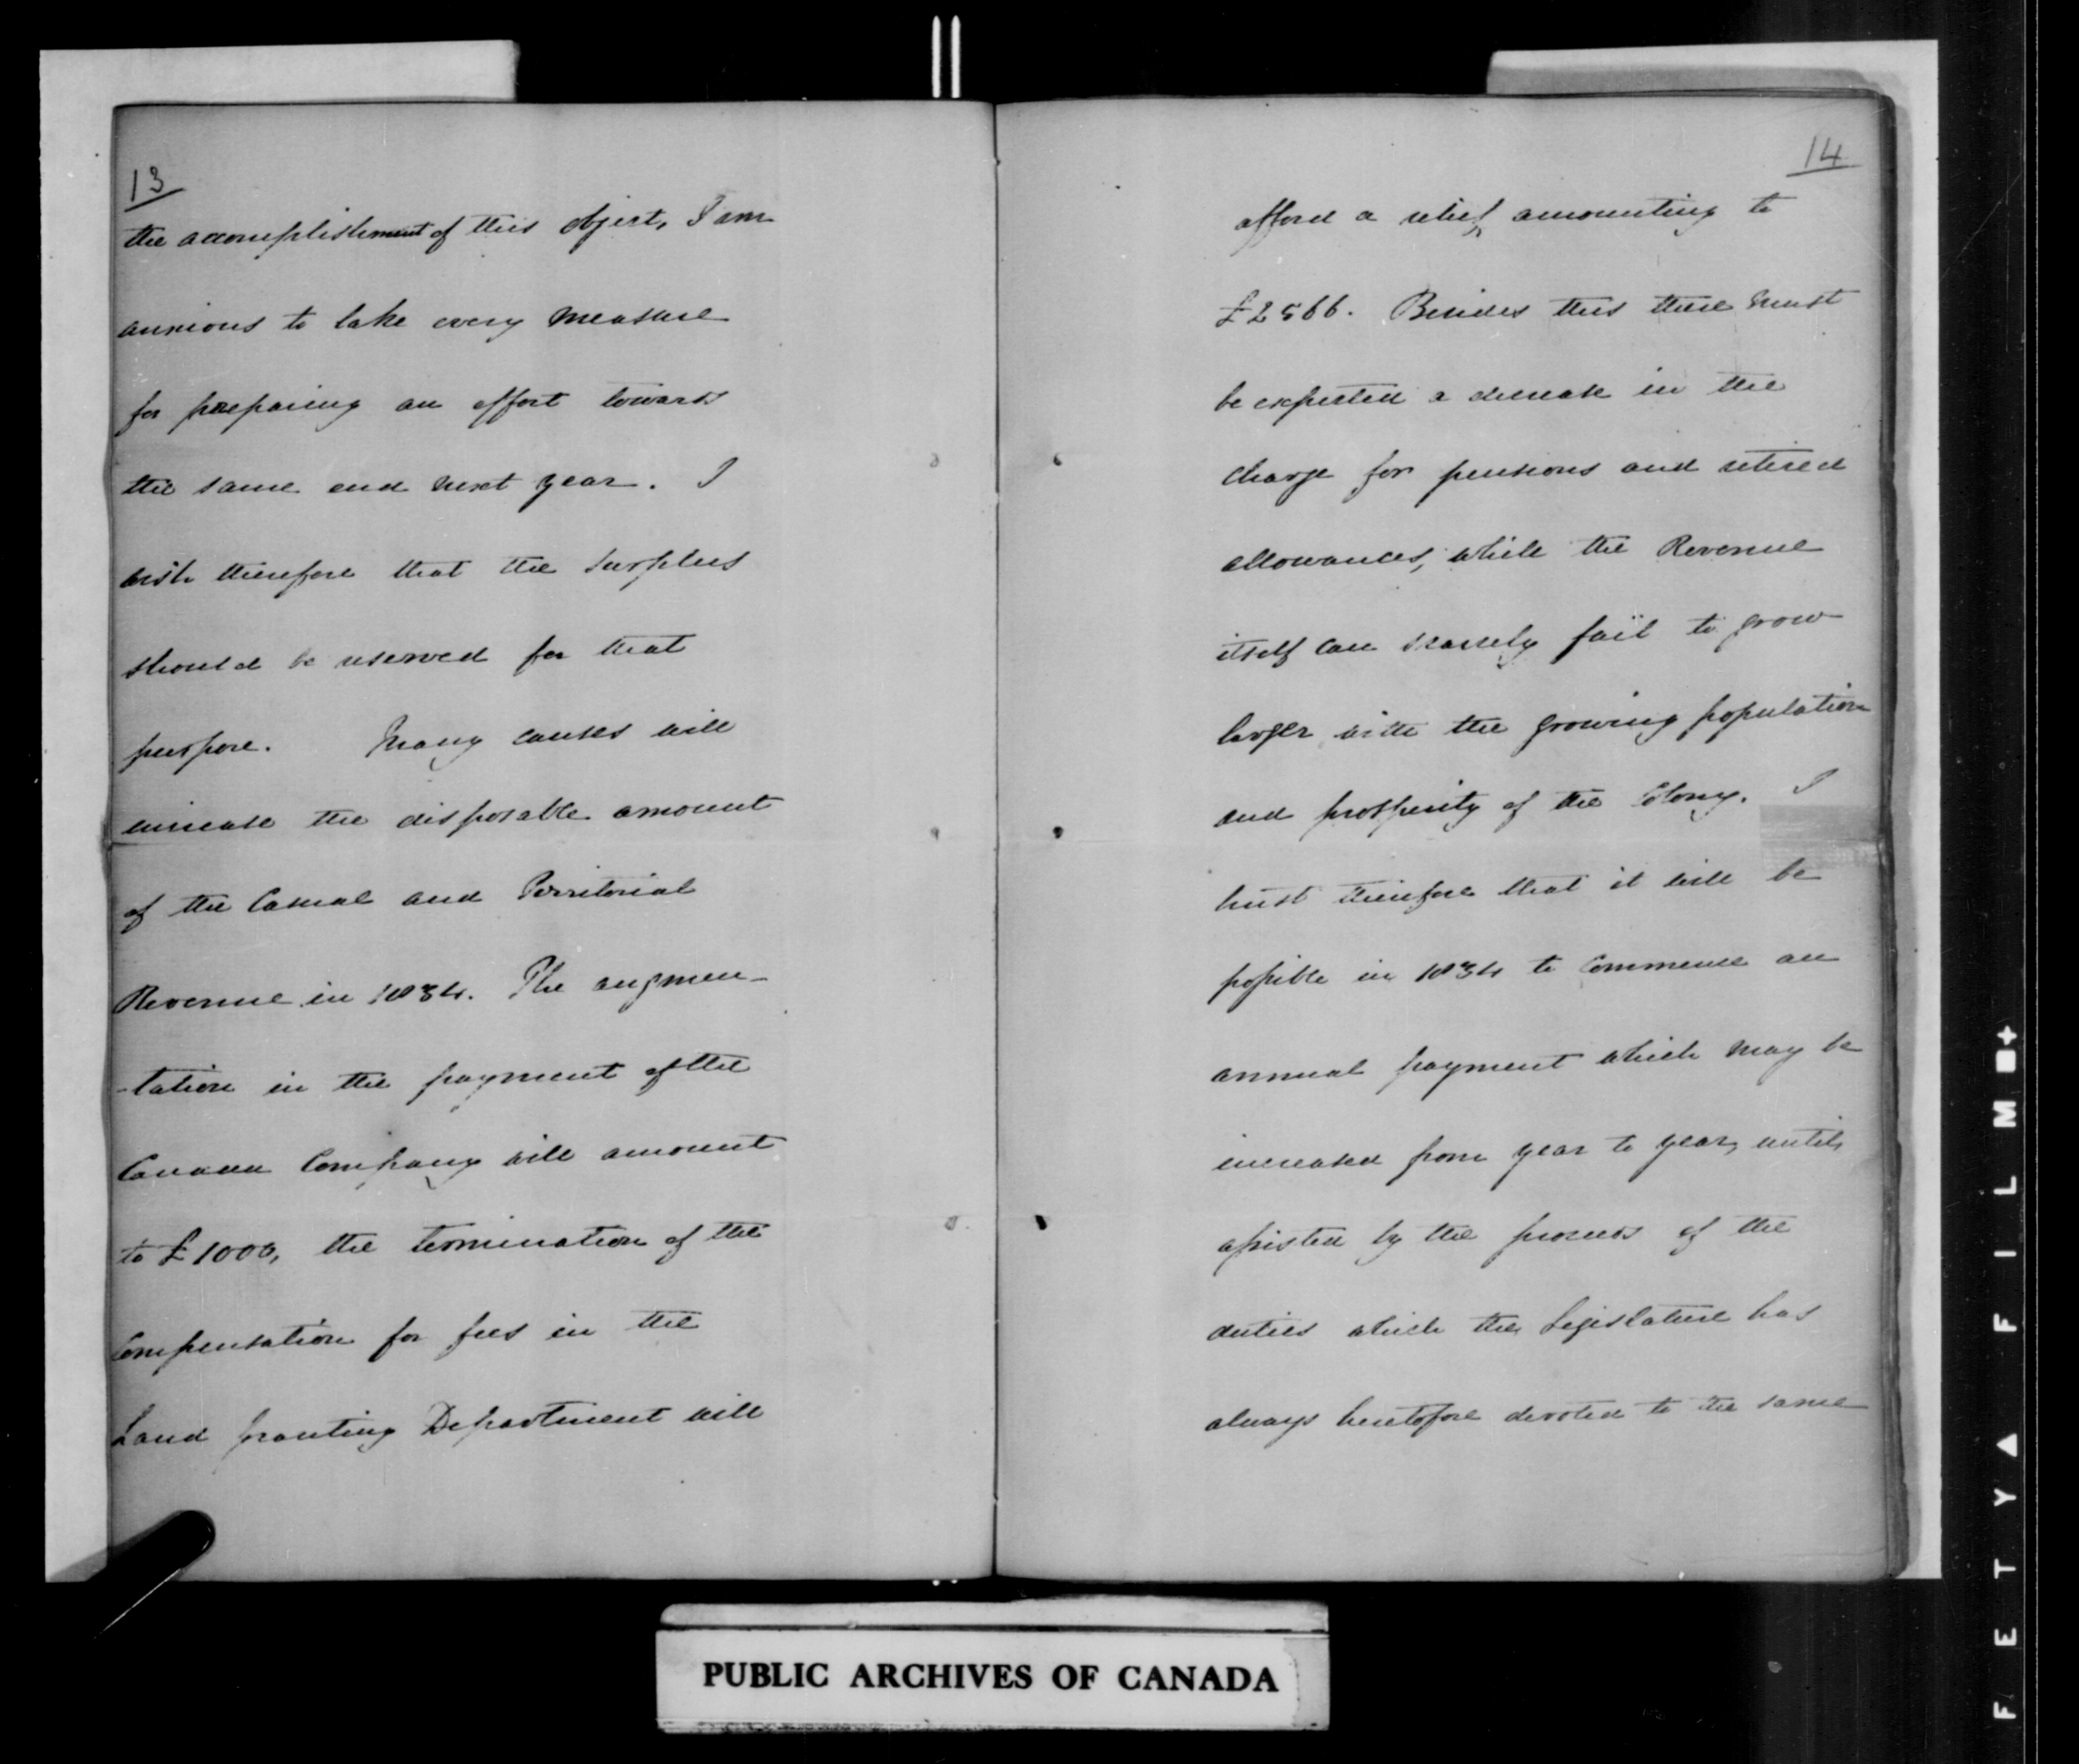 13
the accomplishment of this object, I am
anxious to take every measure
for preparing an effort towards
the same end next year. I
wish therefore that the surplus
should be reserved for that
purpose. Many causes will
increase the disposable amount
of the Casual and Territorial
Revenue in 1834. The augmen-
-tation in the payment of the
Canada Company will amount
to £1000, the termination of the
Compensation for fees in the
Land granting Department will
14
afford a relief, amounting to
£2566. Besides this there must
be expected a decrease in the
charge for pensions and retired
allowances, while the Revenue
itself can scarcely fail to grow
larger with the growing population
and prosperity of the Colony. I
trust therefore that it will be
possible in 1834 to commence an
annual payment which may be
increased from year to year, until,
assisted by the proceeds of the
duties which the Legislature has
always heretofore devoted to the same
PUBLIC ARCHIVES OF CANADA
SAFETY FILM